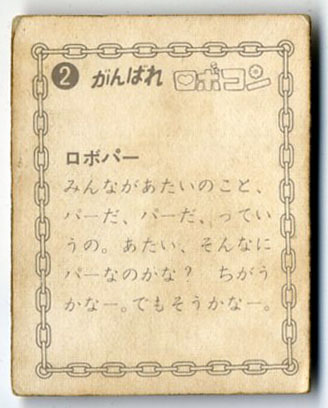 2 がんばれ ロボコン
ロボパー
みんながあたいのこと、
パーだ、パーだ、ってい
うの。あたい、そんなに
パーなのかな? ちがう
かなー。でもそうかなー。